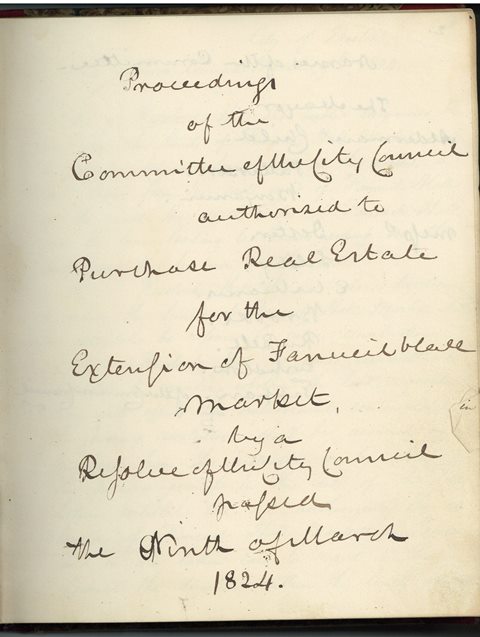 Proceedings
of the
Committee of the City Council
authorised to
Purchase Real Estate
for the
Extension of Faneuil Hall
Market,
by a
Resolve of the City Council
passed
the Ninth of March
1824.
in